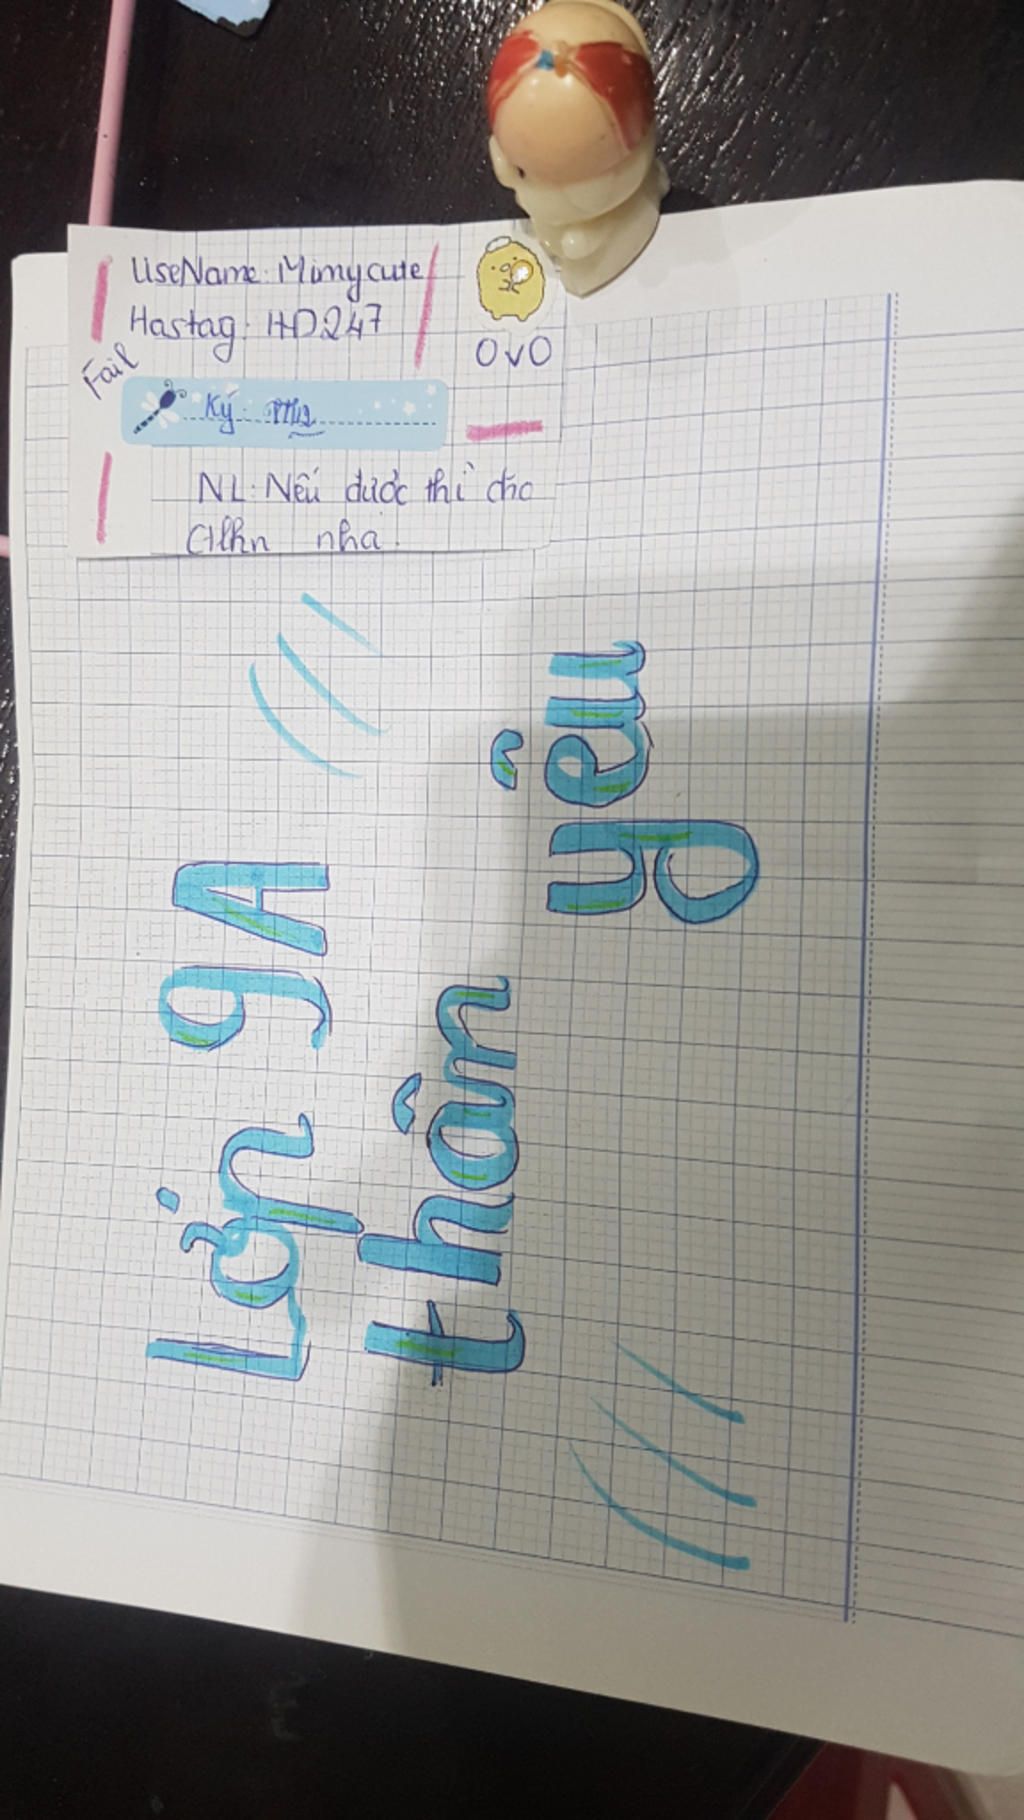 UseName: Mimycute
Hastag: HD247
Fail
OvO
Ký:
NL: Nếu được thì cho
Clhn nha.
Lợn gA
thân yêu